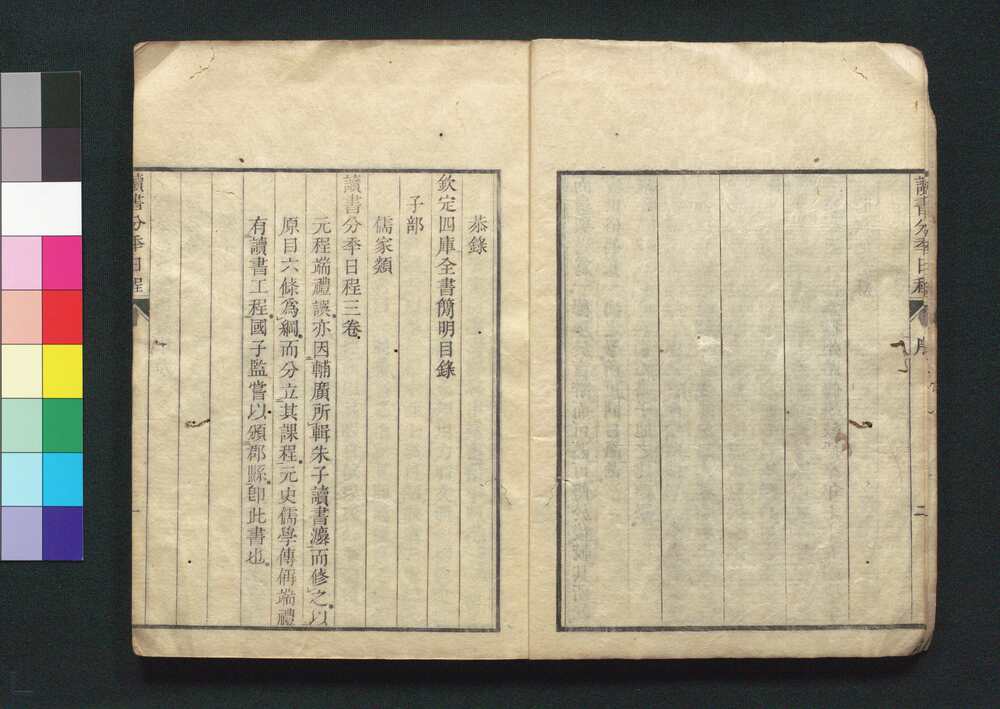 讀書分秊日程
序
二
恭錄
欽定四庫全書簡明目錄
子部
儒家類
讀書分秊日程三卷
元程端禮譔亦因輔廣所輯朱子讀書灋而修之以
原目六條爲綱而分立其課程元史儒學傳偁端禮
有讀書工程國子監嘗以頒郡縣卽此書也
讀書分秊日程
一